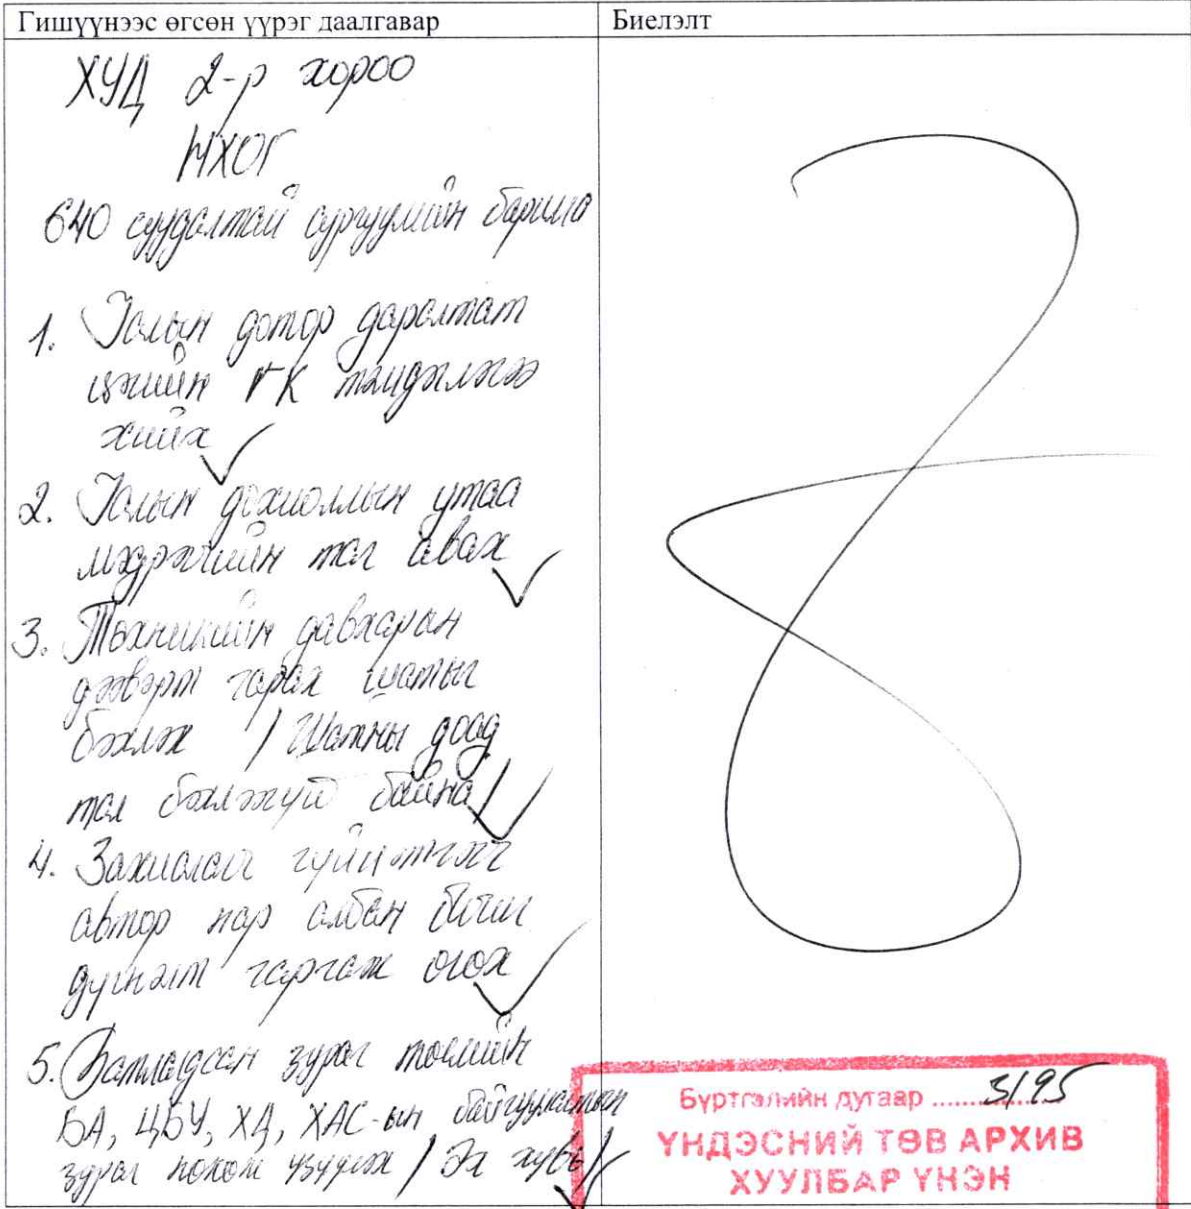 Гишүүнээс өгсөн үүрэг даалгавар
Биелэлт
ХУД 2-р хороо
НХОГ
640 суудалтай сургуулийн барилга
1. Галын дотор даралтат
цэгийн ГК тэмдэглэгээ
хийх
2. Галын дохиоллын утаа
мэдрэгчийн таг авах
3. Техникийн давхарын
дээвэрт гарах шатыг
бэхлэх / Шатны доод
тал бэхлэгүй байна/
4. Захиалагч гүйцэтгэгч
автор нар албан бичиг
дүгнэлт гаргаж өгөх
5. Батлагдсан зураг төслийн
БА, ЦБУ, ХД, ХАС-ын байгууламжын
зураг нөхөж үзүүлэх / Эх хувь/
Бүртгэлийн дугаар ..... 3/95
ҮНДЭСНИЙ ТӨВ АРХИВ
ХУУЛБАР ҮНЭН